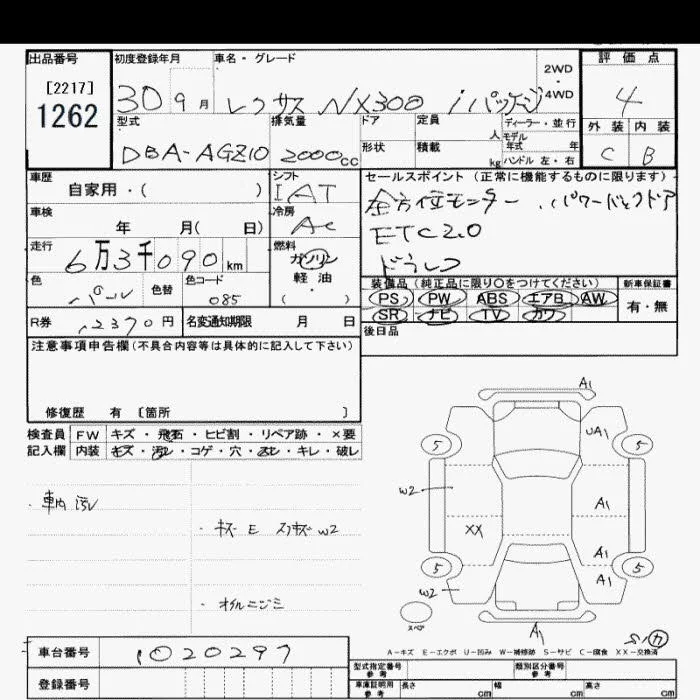 出品番号
[2217]
1262
初度登録年月
30 9月
車名・グレード
レクサス NX300 iパッケージ
2WD
・
4WD
評価点
4
外装 内装
C B
型式
DBA-AGZ10
排気量
2000cc
ドア
形状
定員
人
積載
kg
ディーラー・並行
モデル年式 年
ハンドル 左・右
車歴
自家用・( )
シフト
IAT
車検
年 月( 日)
冷房
AC
走行
6万3千090km
燃料
ガソリン
軽油
( )
色
パール
色替
色コード
085
R券
12370円
名変通知期限 月 日
セールスポイント(正常に機能するものに限ります)
全方位モニター、パワーバックドア
ETC2.0
ドラレコ
装備品(純正品に限り○をつけてください)
PS PW ABS エアB AW
SR ナビ TV カワ
新車保証書
有・無
後日品
注意事項申告欄(不具合内容等は具体的に記入して下さい)
修復歴 有 [箇所 ]
検査員
記入欄
FW キズ・飛石・ヒビ割・リペア跡・×要
内装 キズ・汚レ・コゲ・穴・・キレ・破レ
・車内汚レ
・キズ E スリキズ W2
・オイルニジミ
A1
UA1
5
5
W2
A1
XX
A1
5
5
A1
W2
スペア
A1
A-キズ E-エクボ U-凹み W-補修跡 S-サビ C-腐食 XX-交換済
車台番号
1020297
登録番号
型式指定番号
参考
類別区分番号
参考
車庫証明用
参考
長さ cm
幅 cm
高さ cm